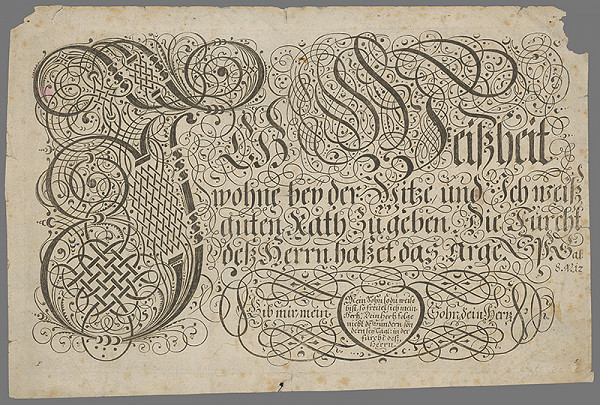 ICH Weißheit
wohne bey der Witze und Ich weiß
guten Rath zu geben. Die Furcht
deß Herrn haßet das Arge. Sp. Sal
8. 12
Gib mir mein Sohn dein Hertz
Mein Sohn so du weise
bist, so freuet sich mein
Hertz. Dein hertz folge
nicht Sündern son
dern sey tägl: in der
furcht deß
Herrn.